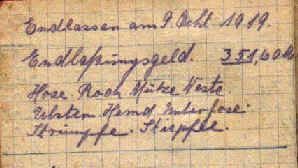 Endlassen am 9. Okt. 1919.
Endlaßungsgeld. 351,60 M
Hose. Rock. Mütze Weste.
Ulstern Hemd Unterhose.
Strümpfe. Stiefel.